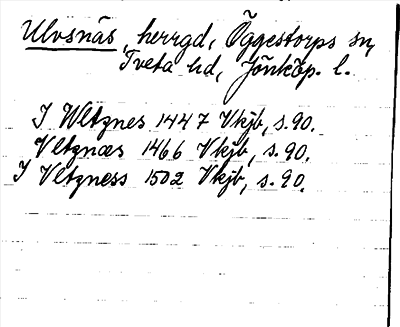 Ulvsnäs, herrgd, Öggestorps sn,
Tveta hd, Jönköp. l.
I Wltznes 1447 Vkjb, s. 90.
Vltznæs 1466 Vkjb, s. 90.
I Vltzness 1502 Vkjb, s. 90.